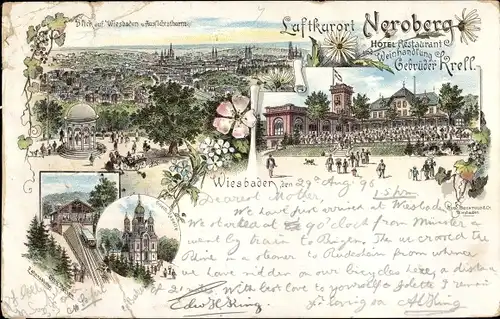 Blick auf Wiesbaden u. Aussichtsthurm
Luftkurort Neroberg
HÔTEL Restaurant
und Weinhandlung
Gebrüder Krell.
Wiesbaden den 29th Aug 96
Dearest Mother,
We have just arrived at Wiesbaden
We started at 9 o'clock from Münster
went by train to Bingen. We crossed the
Rhine on a steamer to Rudesheim from whence
we have ridden on our bicycles here a distance
of 20 miles With best love to yourself & I remain
yr loving son